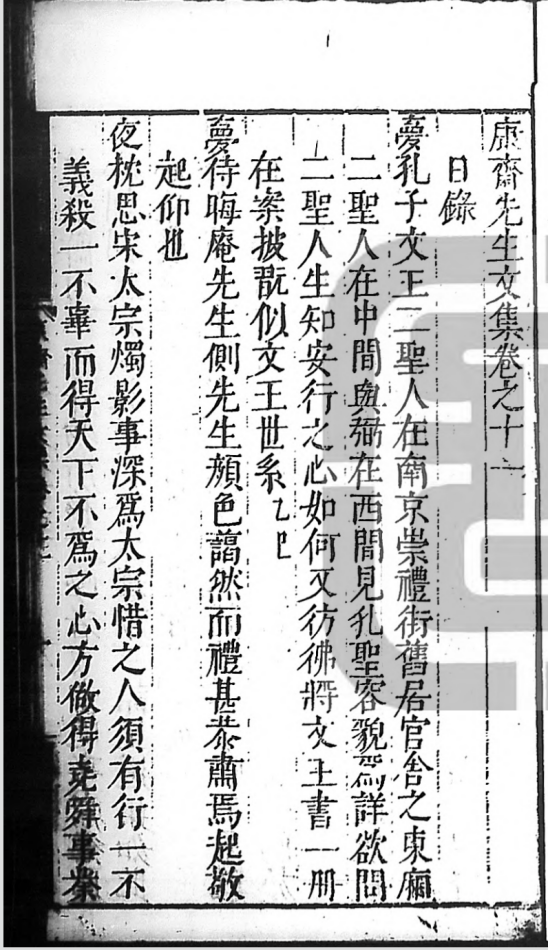 康齋先生文集卷之十一
日錄
夢孔子文王二聖人在南京崇禮街舊居官舍之東廂
二聖人在中間與弼在西間見孔聖容貌爲詳欲問
二聖人生知安行之心如何又彷彿將文王書一册
在案披翫似文王世系乙巳
夢侍晦庵先生側先生顔色藹然而禮甚恭肅焉起敬
起仰也
夜枕思宋太宗燭影事深爲太宗惜之人須有行一不
義殺一不辜而得天下不爲之心方做得堯舜事業